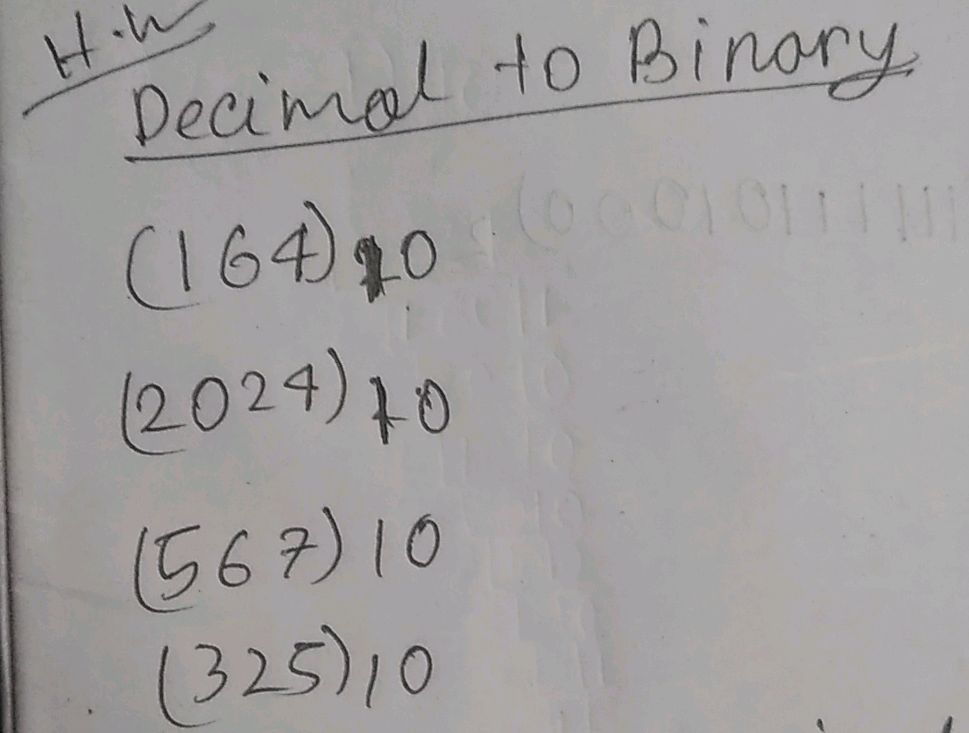 H.W
Decimal to Binary
(164)10
(2024)10
(567)10
(325)10